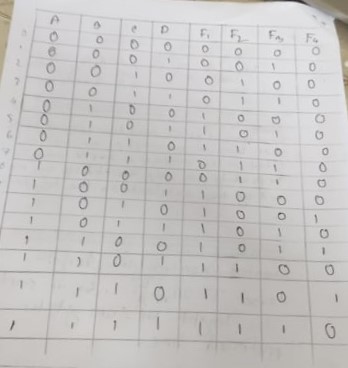 A B C D F1 F2 F3 F4
0 0 0 0 0 0 0 0
0 0 0 1 0 0 1 0
0 0 1 0 0 1 0 0
0 0 1 1 0 1 1 0
0 1 0 0 1 0 0 0
0 1 0 1 1 0 1 0
0 1 1 0 1 1 0 0
0 1 1 1 0 1 1 0
1 0 0 0 0 1 1 0
1 0 0 1 1 0 0 0
1 0 1 0 1 0 0 1
1 0 1 1 1 0 1 0
1 1 0 0 1 0 1 1
1 1 0 1 1 1 0 0
1 1 1 0 1 1 0 1
1 1 1 1 1 1 1 0